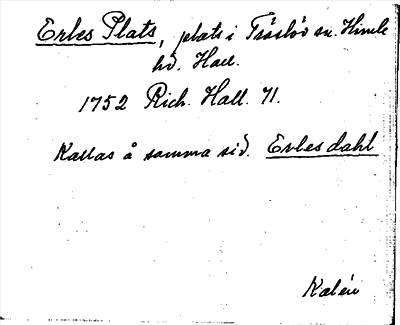 Erles Plats, plats i Träslöv sn. Himle
hd. Hall.
1752 Rich. Hall. 71.
Kallas å samma sid. Erlesdahl
Kalén